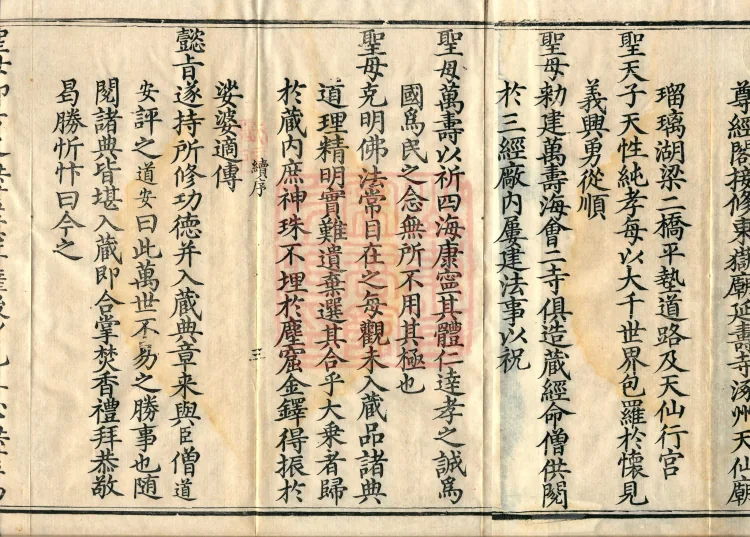 尊經閣接修東嶽廟延壽寺涿州天仙廟
瑠璃湖梁二橋平墊道路及天仙行宮
聖天子天性純孝母以大千世界包羅於懷見
義興勇從順
聖母勑建萬壽海會二寺俱造藏經命僧供閱
於三經厰內屢建法事以祝
聖母萬壽以祈四海康寧其體仁達孝之誠爲
國爲民之念無所不用其極也
聖母克明佛法常目在之每觀未入藏品諸典
道理精明實難遺棄選其合乎大乗者歸
於藏內庶神珠不埋於塵窟金鐸得振於
娑婆適傳
續序
三
懿旨遂持所修功德并入藏典章来與臣僧道
安評之道安曰此萬世不易之勝事也随
閱諸典皆堪入藏即合掌焚香禮拜恭敬
曷勝忻忭曰今之